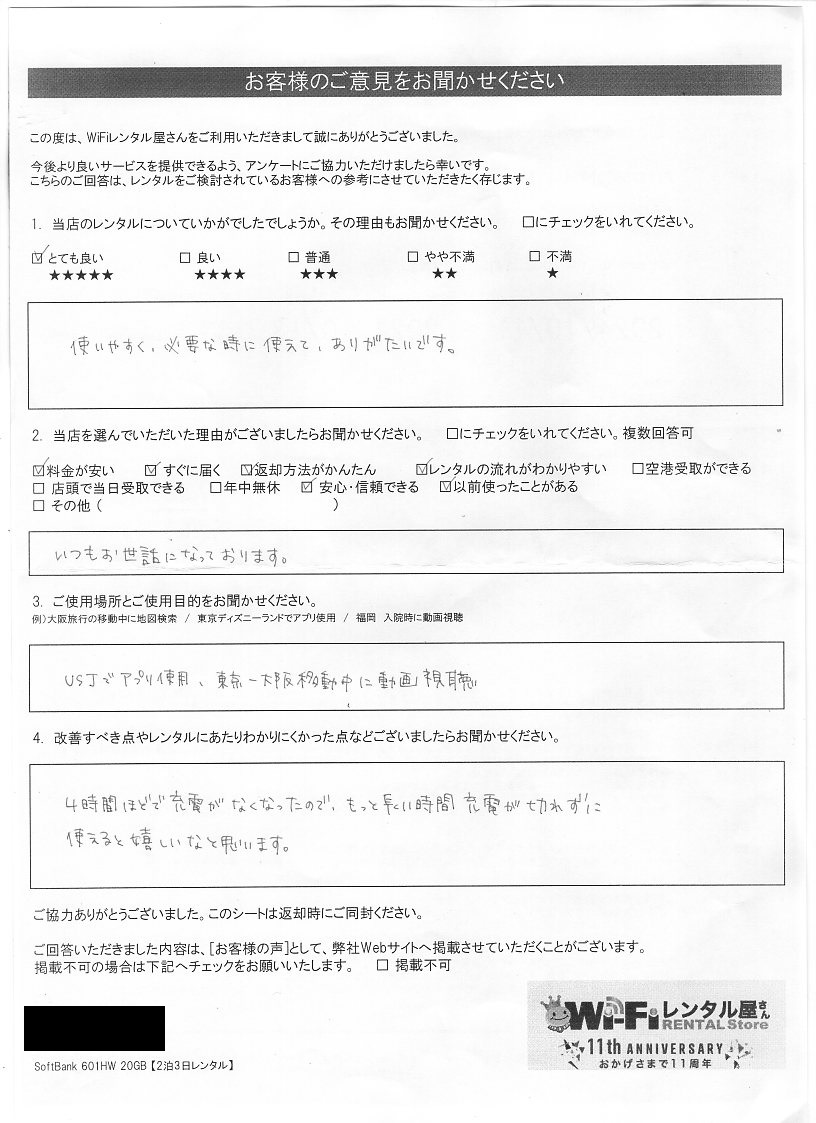 お客様のご意見をお聞かせください
この度は、WiFiレンタル屋さんをご利用いただきまして誠にありがとうございました。
今後より良いサービスを提供できるよう、アンケートにご協力いただけましたら幸いです。
こちらのご回答は、レンタルをご検討されているお客様への参考にさせていただきたく存じます。
1. 当店のレンタルについていかがでしたでしょうか。その理由もお聞かせください。 □にチェックをいれてください。
☑とても良い □ 良い □ 普通 □ やや不満 □ 不満
★★★★★ ★★★★ ★★★ ★★ ★
使いやすく、必要な時に使えて、ありがたいです。
2. 当店を選んでいただいた理由がございましたらお聞かせください。 □にチェックをいれてください。複数回答可
☑料金が安い ☑ すぐに届く ☑返却方法がかんたん ☑レンタルの流れがわかりやすい □空港受取ができる
□ 店頭で当日受取できる □年中無休 ☑ 安心・信頼できる ☑以前使ったことがある
□ その他 ( )
いつもお世話になっております。
3. ご使用場所とご使用目的をお聞かせください。
例)大阪旅行の移動中に地図検索 / 東京ディズニーランドでアプリ使用 / 福岡 入院時に動画視聴
USJでアプリ使用、東京ー大阪移動中に動画視聴
4. 改善すべき点やレンタルにあたりわかりにくかった点などございましたらお聞かせください。
4時間ほどで充電がなくなったので、もっと長い時間充電が切れずに
使えると嬉しいなと思います。
ご協力ありがとうございました。このシートは返却時にご同封ください。
ご回答いただきました内容は、[お客様の声]として、弊社Webサイトへ掲載させていただくことがございます。
掲載不可の場合は下記へチェックをお願いいたします。 □ 掲載不可
Wi-Fiレンタル屋さん
RENTAL Store
11th ANNIVERSARY
おかげさまで11周年
SoftBank 601HW 20GB【2泊3日レンタル】